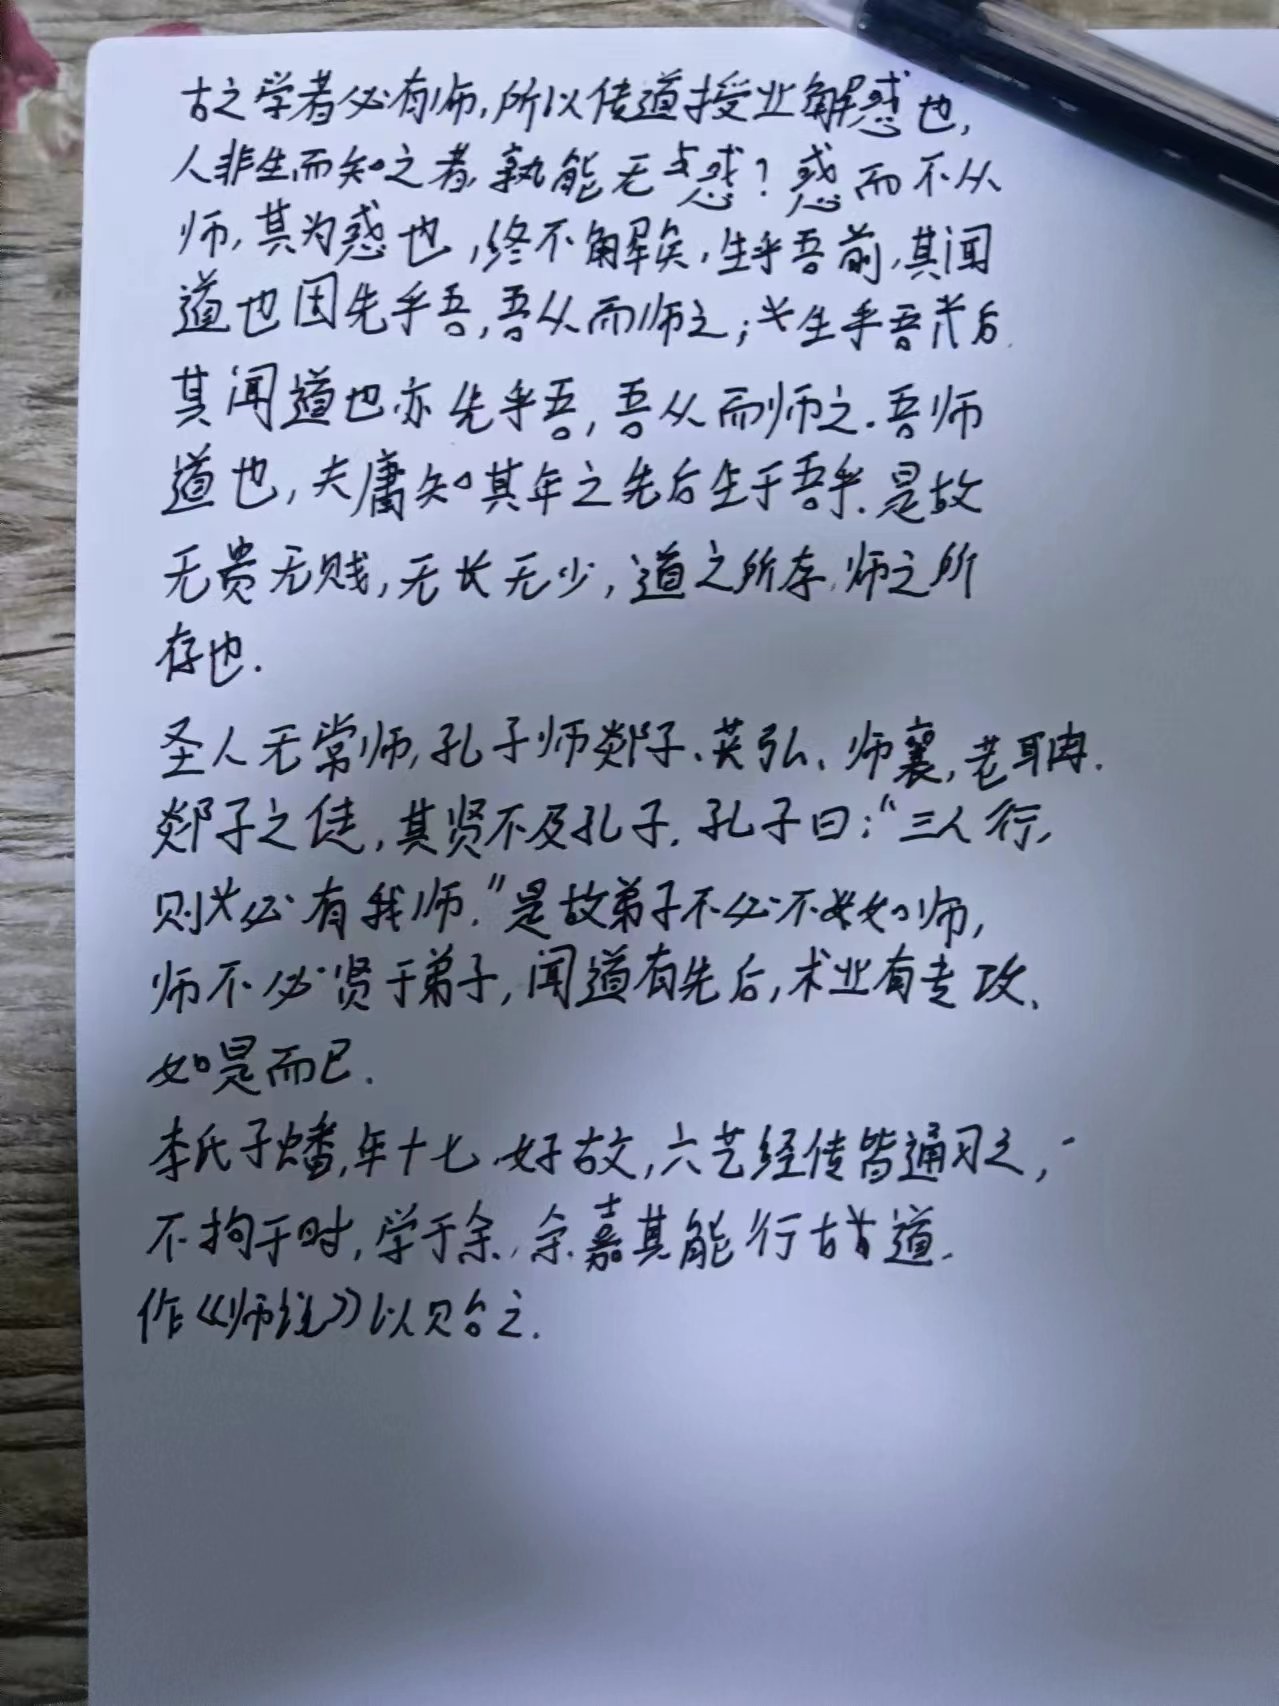 古之学者必有师,所以传道授业解惑也,
人非生而知之者,孰能无惑?惑而不从
师,其为惑也,终不解矣,生乎吾前,其闻
道也因先乎吾,吾从而师之;生乎吾后
其闻道也亦先乎吾,吾从而师之.吾师
道也,夫庸知其年之先后生于吾乎.是故
无贵无贱,无长无少,道之所存,师之所
存也.
圣人无常师,孔子师郯子、苌弘、师襄,老聃.
郯子之徒,其贤不及孔子.孔子曰:“三人行,
则必有我师.”是故弟子不必不如师,
师不必贤于弟子,闻道有先后,术业有专攻、
如是而已.
李氏子蟠,年十七,好古文,六艺经传皆通习之,
不拘于时,学于余,余嘉其能行古道.
作《师说》以贻之.